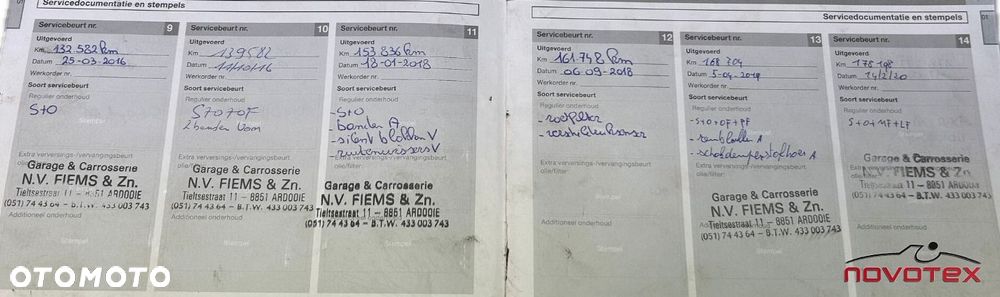 Servicedocumentatie en stempels
Servicebeurt nr. 9
Uitgevoerd
Km 132.582 km
Datum 25-03-2016
Werkorder nr.
Soort servicebeurt
Regulier onderhoud
S+O
Stempel
Extra verversings-/vervangingsbeurt
olie/filter:
Garage & Carrosserie
N.V. FIEMS & Zn.
Tieltsestraat 11 – 8851 ARDOOIE
(051) 74 43 64 – B.T.W. 433 003 743
Additioneel onderhoud
Stempel
Servicebeurt nr. 10
Uitgevoerd
Km 139582
Datum 11/10/16
Werkorder nr.
Soort servicebeurt
Regulier onderhoud
2 banden
Extra verversings-/vervangingsbeurt
olie/filter:
Garage & Carrosserie
N.V. FIEMS & Zn.
Tieltsestraat 11 – 8851 ARDOOIE
(051) 74 43 64 – B.T.W. 433 003 743
Additioneel onderhoud
Stempel
Servicebeurt nr. 11
Uitgevoerd
Km 153 836 km
Datum 18-01-2018
Werkorder nr.
Soort servicebeurt
Regulier onderhoud
- S+O
- banden A
- silent blokken V
- ruitenwissers V
Extra verversings-/vervangingsbeurt
Garage & Carrosserie
N.V. FIEMS & Zn.
Tieltsestraat 11 – 8851 ARDOOIE
(051) 74 43 64 – B.T.W. 433 003 743
Additioneel onderhoud
Stempel
01
Servicedocumentatie en stempels
Servicebeurt nr. 12
Uitgevoerd
Km 161.748 km
Datum 06-09-2018
Werkorder nr.
Soort servicebeurt
Regulier onderhoud
- roetfilter
Extra verversings-/vervangingsbeurt
olie/filter:
Stempel
Additioneel onderhoud
Stempel
Servicebeurt nr. 13
Uitgevoerd
Km 168 704
Datum 5-04-2019
Werkorder nr.
Soort servicebeurt
Regulier onderhoud
- S+O+OF+PF
- remblokken A
Extra verversings-/vervangingsbeurt
Garage & Carrosserie
N.V. FIEMS & Zn.
Tieltsestraat 11 – 8851 ARDOOIE
(051) 74 43 64 – B.T.W. 433 003 743
Stempel
Servicebeurt nr. 14
Uitgevoerd
Km 178 198
Datum 14/2/20
Werkorder nr.
Soort servicebeurt
Regulier onderhoud
S+O+MF+LF
Garage & Carrosserie
N.V. FIEMS & Zn.
Tieltsestraat 11 – 8851 ARDOOIE
(051) 74 43 64 – B.T.W. 433 003 743
Additioneel onderhoud
01
OTOMOTO
NOVOTEX